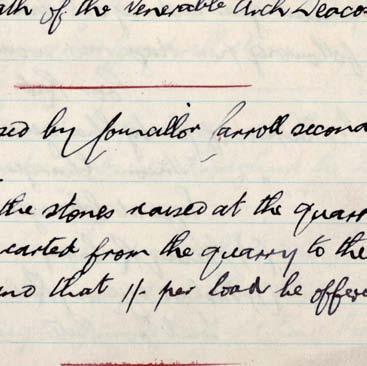 ath of the Venerable Arch Deaco
sed by Councillor Carroll second
the stones raised at the quarr
carted from the quarry to the
and that 1/- per load be offere